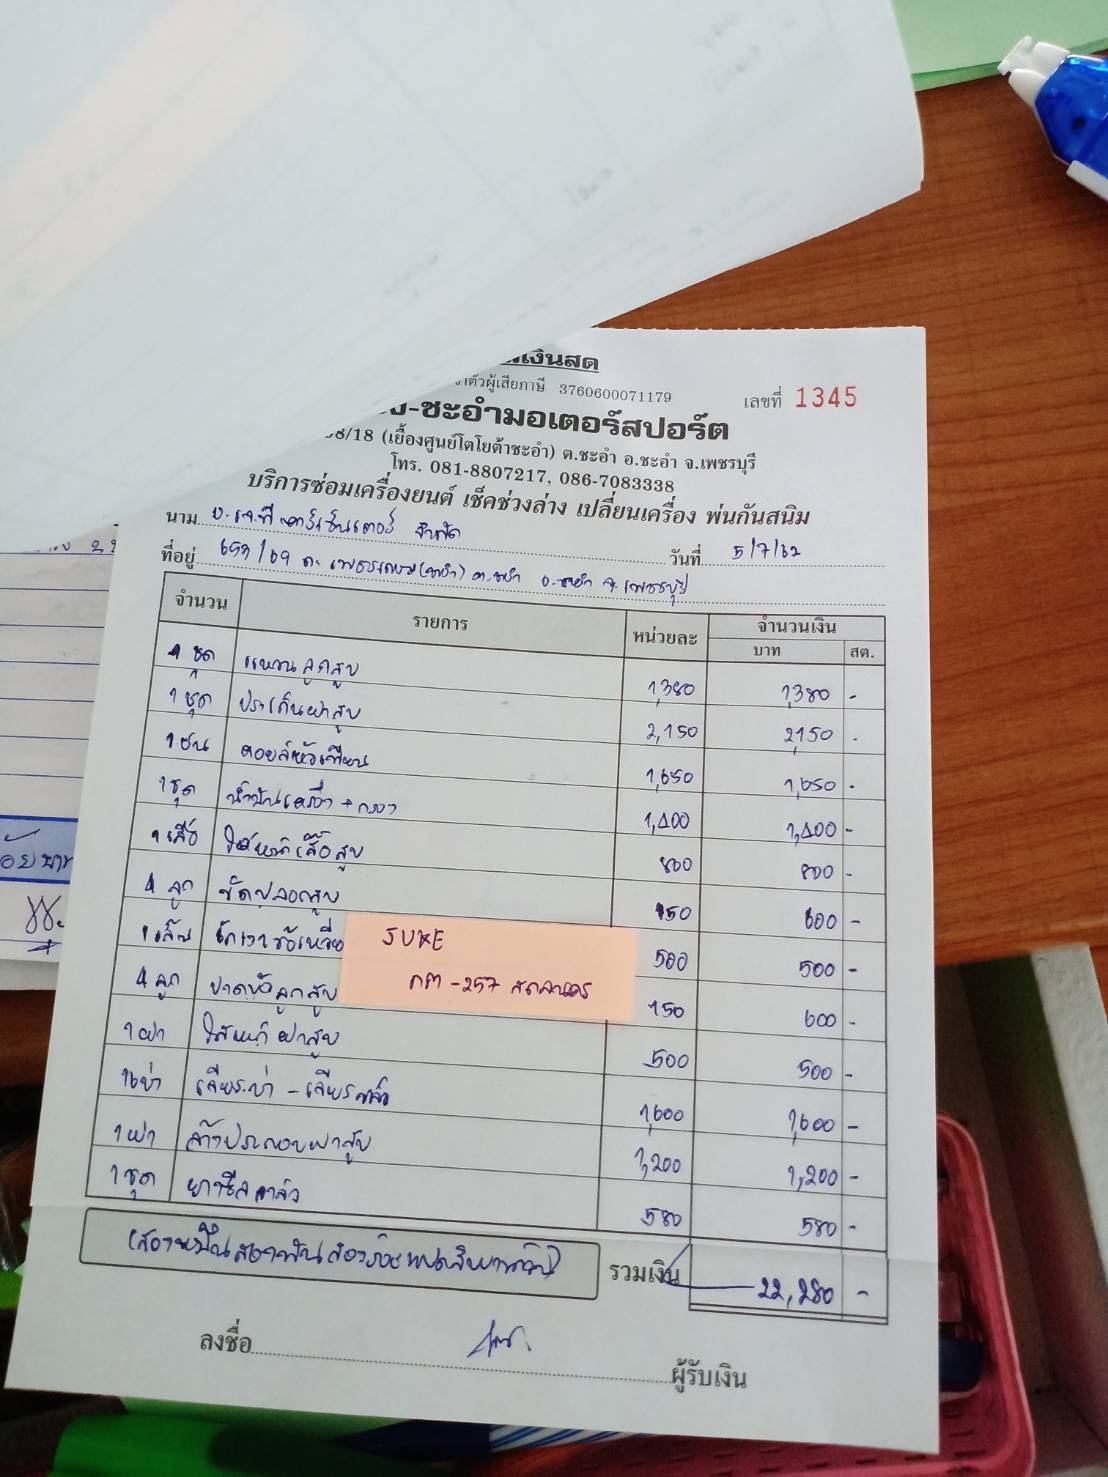 เงินสด
ตัวผู้เสียภาษี 3760600071179
เลขที่ 1345
-ชะอำมอเตอร์สปอร์ต
8/18 (เยื้องศูนย์โตโยต้าชะอำ) ต.ชะอำ อ.ชะอำ จ.เพชรบุรี
โทร. 081-8807217, 086-7083338
บริการซ่อมเครื่องยนต์ เช็คช่วงล่าง เปลี่ยนเครื่อง พ่นกันสนิม
นาม บ. เจ.ที คาร์เซ็นเตอร์ จำกัด
วันที่ 5/7/62
ที่อยู่ 659/69 ถ. เพชรเกษม(ชะอำ) ต.ชะอำ อ.ชะอำ จ.เพชรบุรี
จำนวน รายการ หน่วยละ จำนวนเงิน
บาท สต.
1 ชุด แหวนลูกสูบ 1,380 1,380 -
1 ชุด ประเก็นฝาสูบ 2,150 2,150 -
1 อัน คอยล์หัวเทียน 1,650 1,650 -
1 ชุด น้ำมันเครื่อง + กรอง 1,400 1,400 -
1 เสื้อ ใสหน้าเสื้อสูบ 800 800 -
4 ลูก ขัดปลอกสูบ 150 600 -
1 เส้น ขัดเงาข้อเหวี่ย 500 500 -
4 ลูก ปาดหัวลูกสูบ 150 600 -
1 ฝา ใสหน้าฝาสูบ 500 500 -
16 บ่า เจียรบ่า - เจียรวาล์ว 1,600 1,600 -
1 ฝา ล้างประกอบฝาสูบ 1,200 1,200 -
1 ชุด ยางซีลวาล์ว 580 580 -
JUKE
กต - 257 สกลนคร
(สองหมื่นสองพันสองร้อยแปดสิบบาทถ้วน) รวมเงิน 22,280 -
ลงชื่อ ผู้รับเงิน